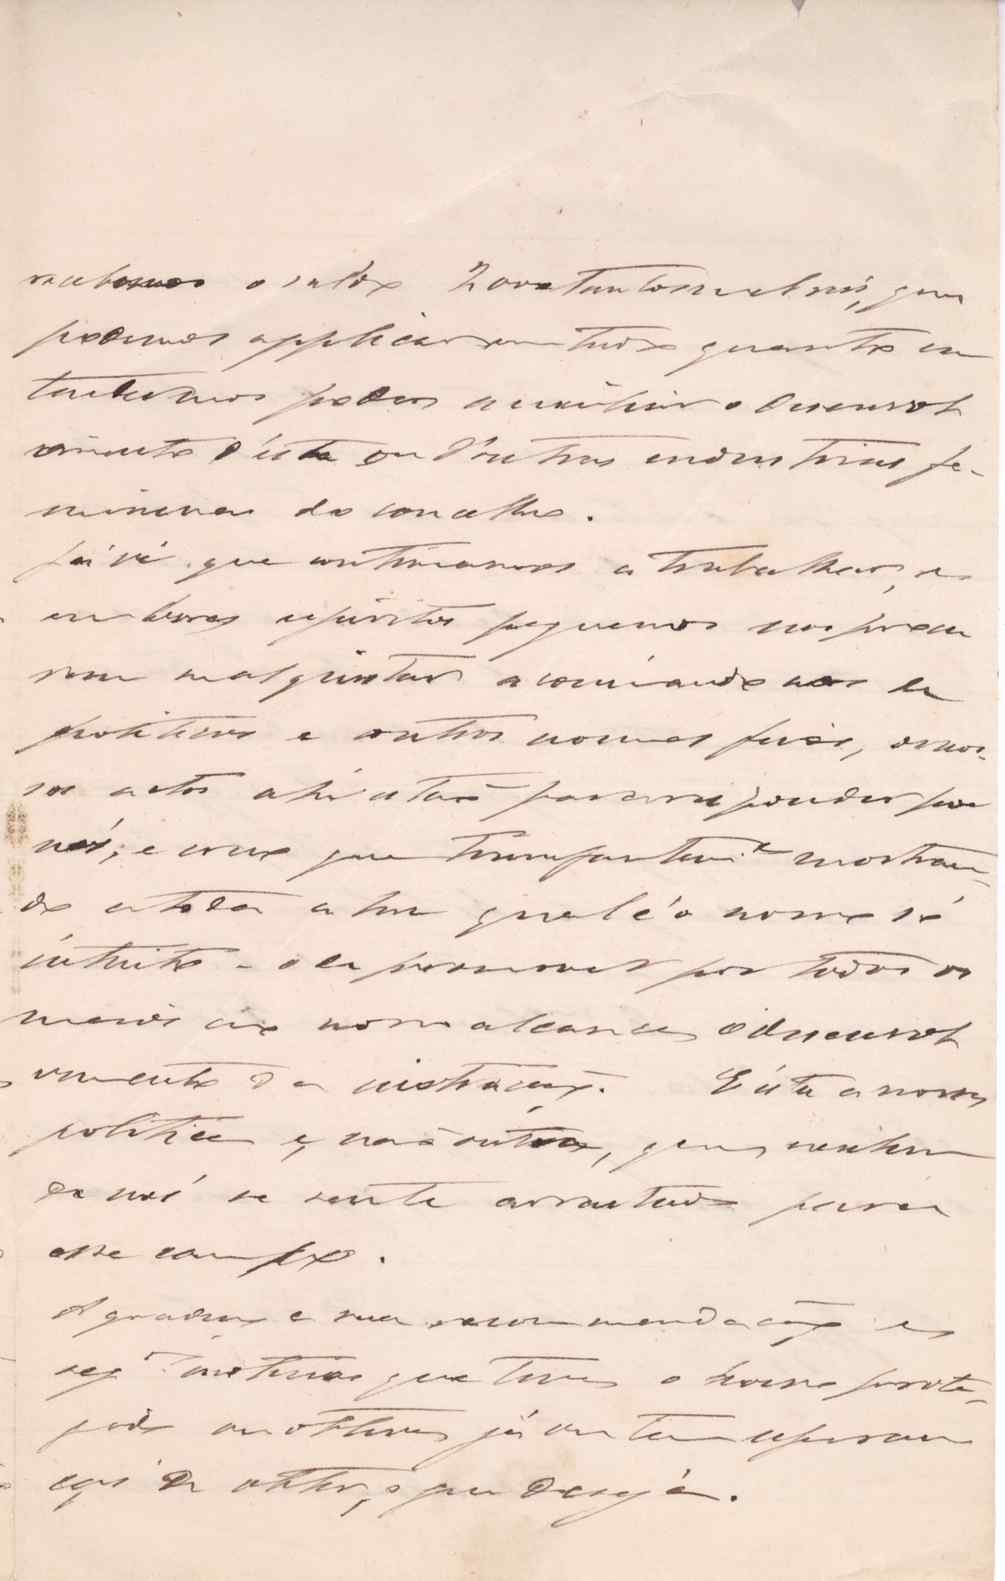 recebemos o saldo que
podemos applicar em tudo quanto en
tendermos poder auxiliar o desenvol
vimento d'esta ou d'outras industrias fe-
mininas do concelho.
Já vê que continuamos a trabalhar, e
embora espiritos pequenos nos procu
rem malquistar acoimando nos de
politicos e outros nomes feios, os nos-
sos actos ahi estão para responder por
nós; e creio que mostran-
do a toda a luz qual é o nosso só
intuito - o de promover por todos os
meios ao nosso alcance o desenvol
vimento da instrucção. E' esta a nossa
politica e não outra, que nenhum
de nós se sente arrastado para
esse campo.
Agradeço a sua recommendação e
seg. que tive o nosso prote-
gido ou obteve já ou tem esperan
ças de obter o que deseja.